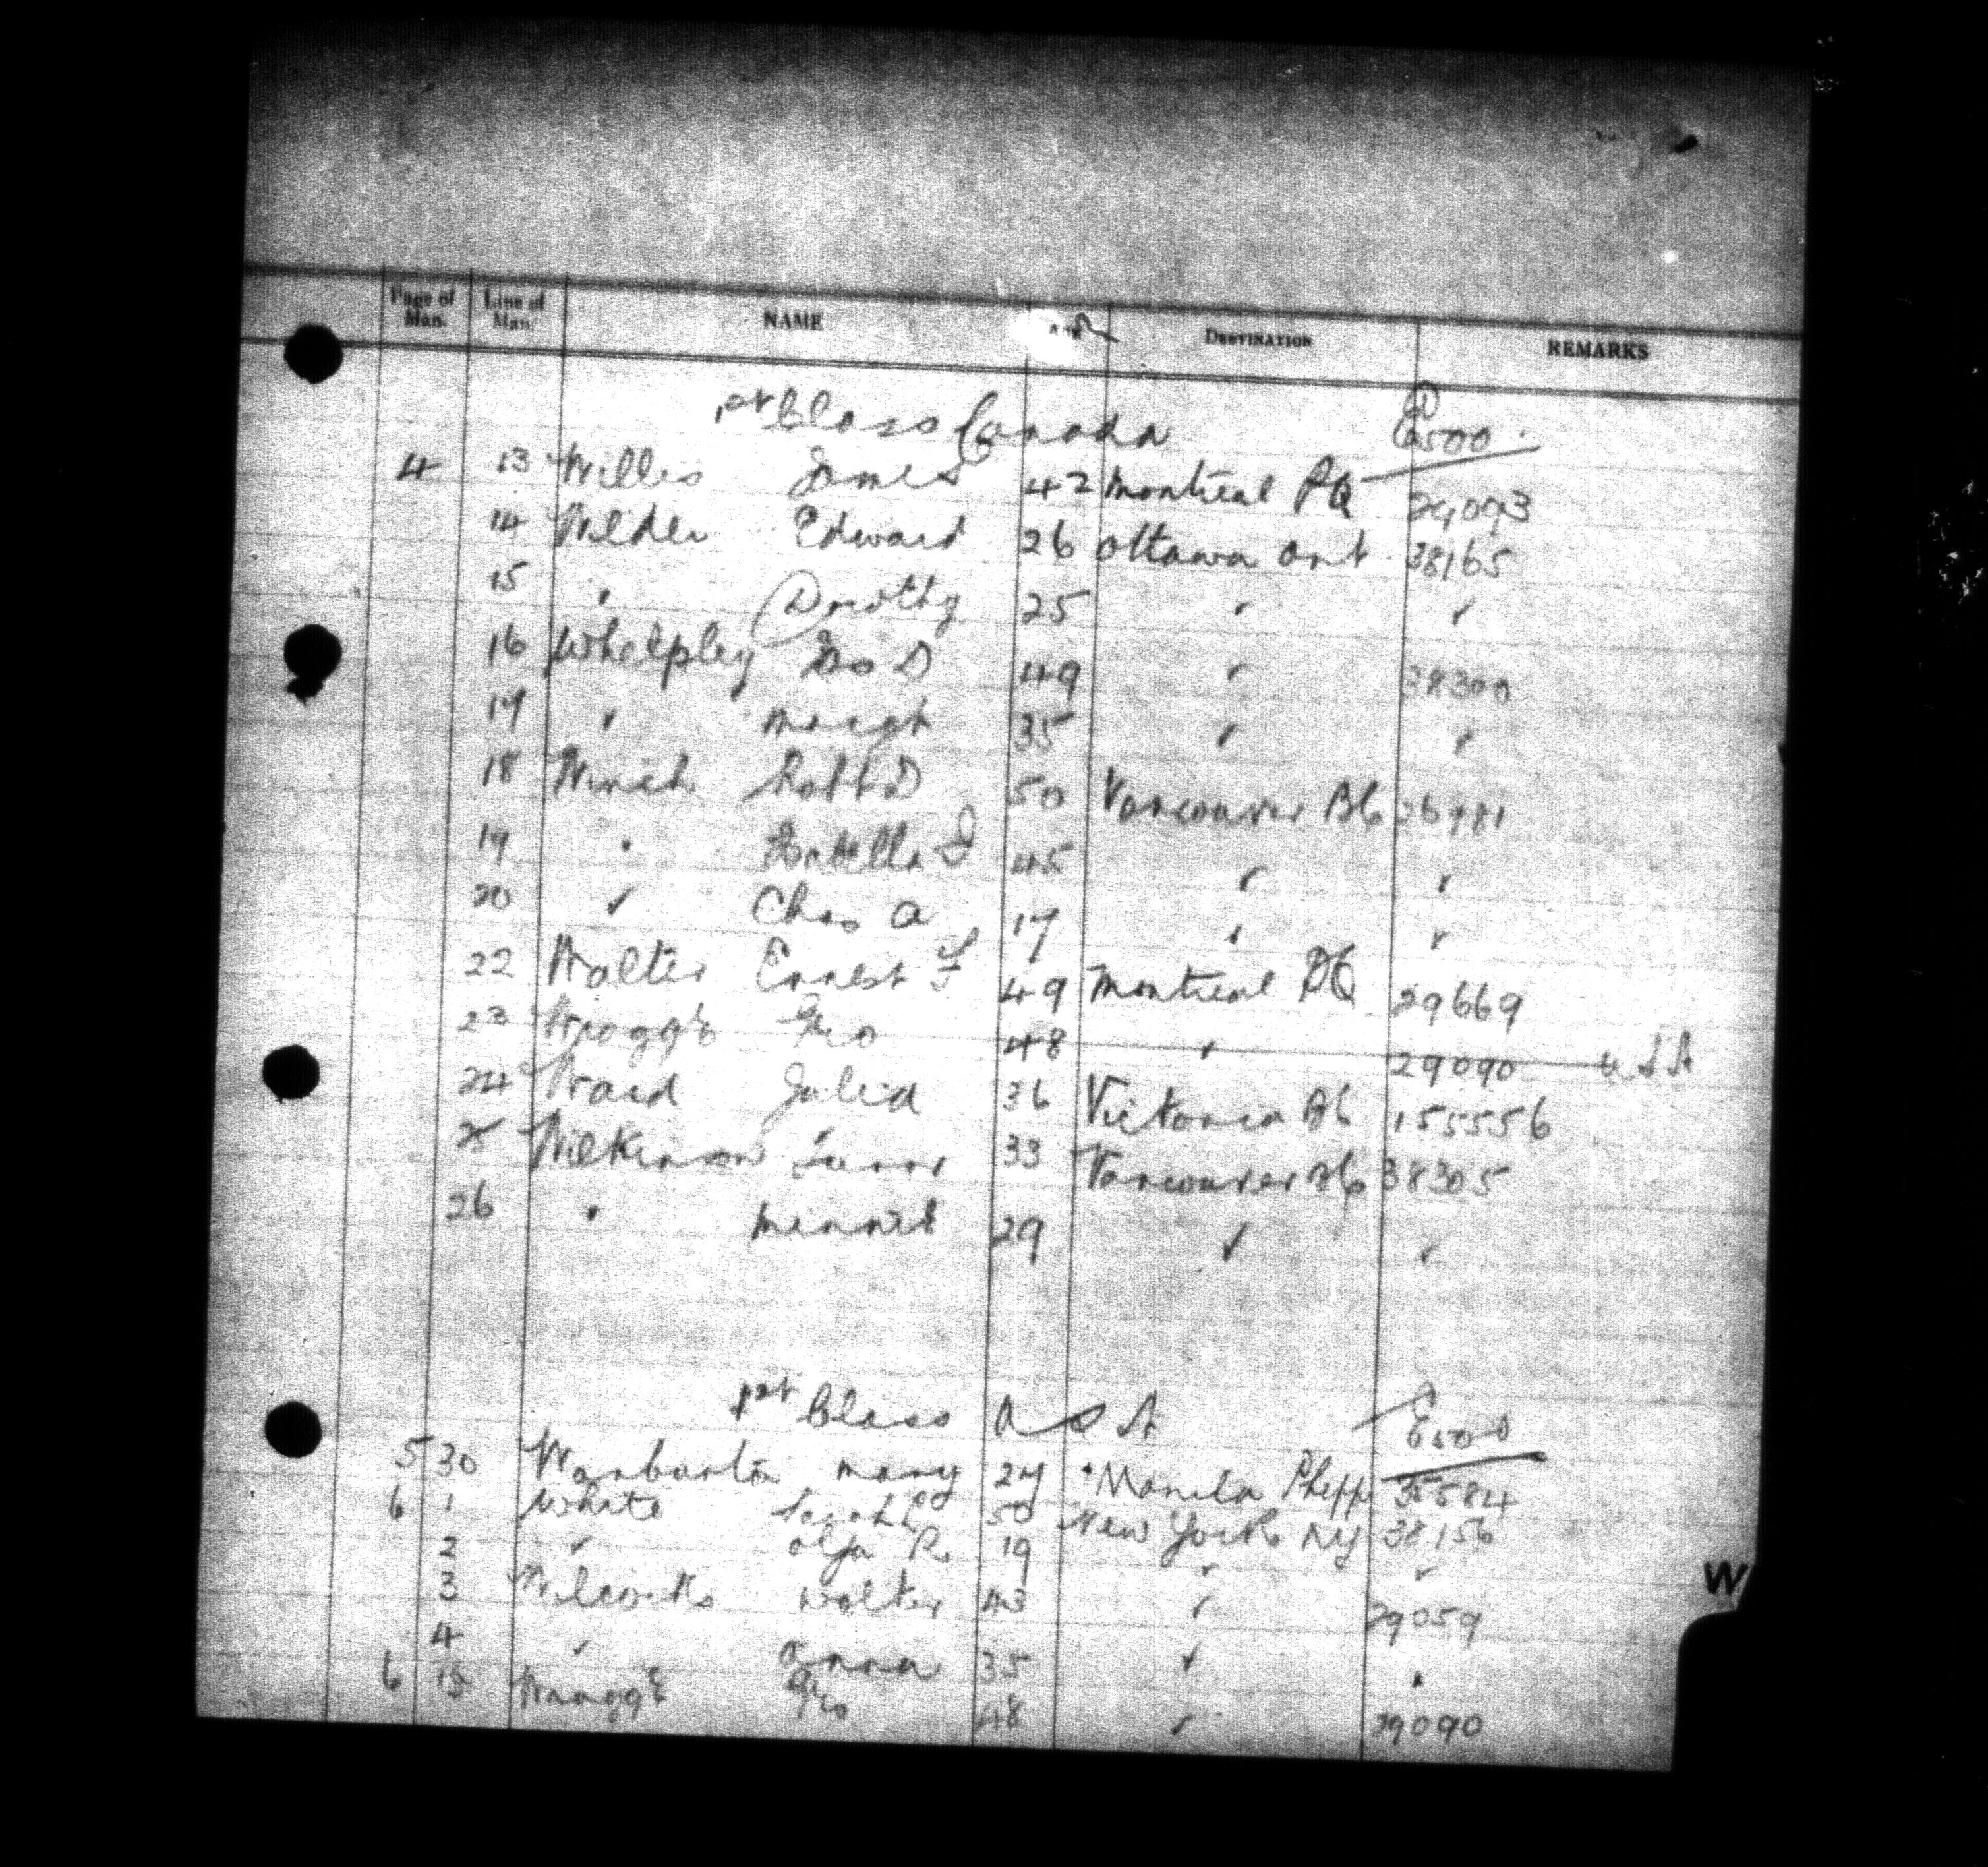 Page of Man. Line of Man. NAME Age DESTINATION REMARKS
1st Class Canada E500
4 13 Willis James 42 Montreal PQ 29093
14 Wilder Edward 26 Ottawa Ont 38165
15 " Dorothy 25 " "
16 Whelpley Geo D 49 " 38300
17 " Margt 35 " "
18 Winch Robt D 50 Vancouver BC
19 " Isabella J 45 " "
20 " Chas A 17 " "
22 Walter Ernest F 49 Montreal PQ 29669
23 Wragge Geo 48 " 29090 USA
24 Ward Julia 36 Victoria BC 155556
25 Wilkinson 33 Vancouver BC 38305
26 " Minnie 29 " "
1st Class USA E500
5 30 Warburton Mary 27 Manila Phipp 35584
6 1 White Sarah L 50 New York NY 38156
2 " Olga R 19 " "
3 Wilcocks Walter 43 " 29059
4 " Anna 35 " "
6 15 Wragge Geo 48 " 29090
W